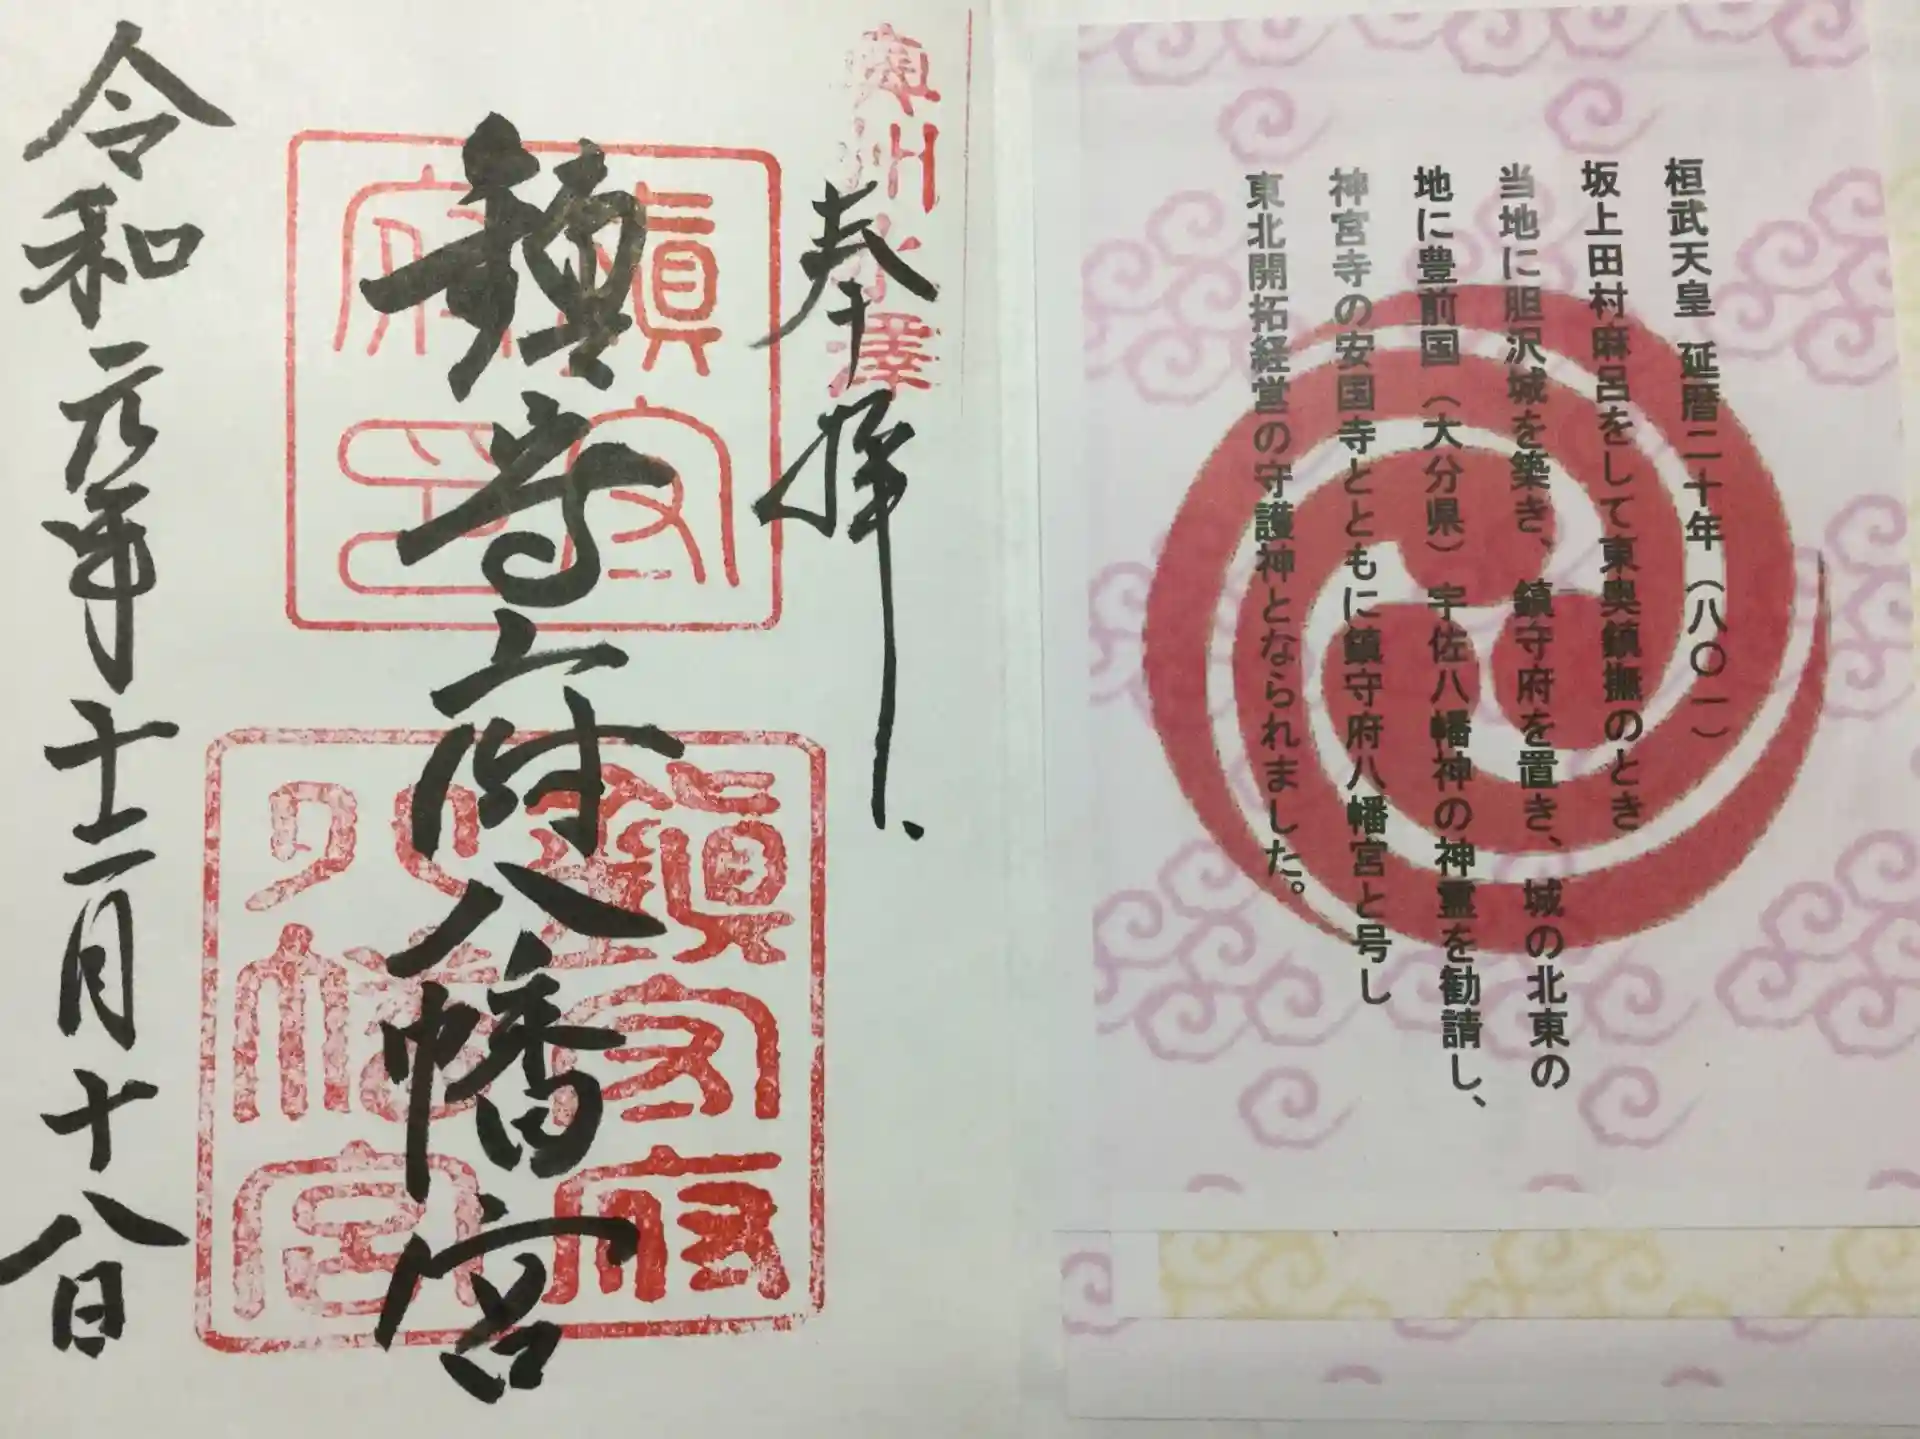 桓武天皇 延暦二十年（八〇一）
坂上田村麻呂をして東奥鎮撫のとき
当地に胆沢城を築き、鎮守府を置き、城の北東の
地に豊前国（大分県）宇佐八幡神の神霊を勧請し、
神宮寺の安国寺とともに鎮守府八幡宮と号し
東北開拓経営の守護神となられました。
奥州水澤
奉拝
鎮守府八幡宮
鎮守府印
鎮守府八幡宮
令和元年十二月十八日